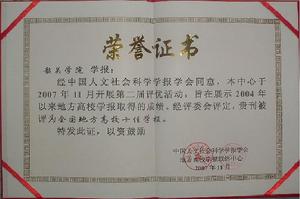 荣誉证书
韶关学院 学报:
经中国人文社会科学学报学会同意,本中心于
2007年11月开展第二届评优活动,旨在展示2004年
以来地方高校学报取得的成绩。经评委会评定,贵刊被
评为全国地方高校十佳学报。
特发此证,以资鼓励
中国人文社会科学学报学会
地方高校学报联络中心
2007年11月